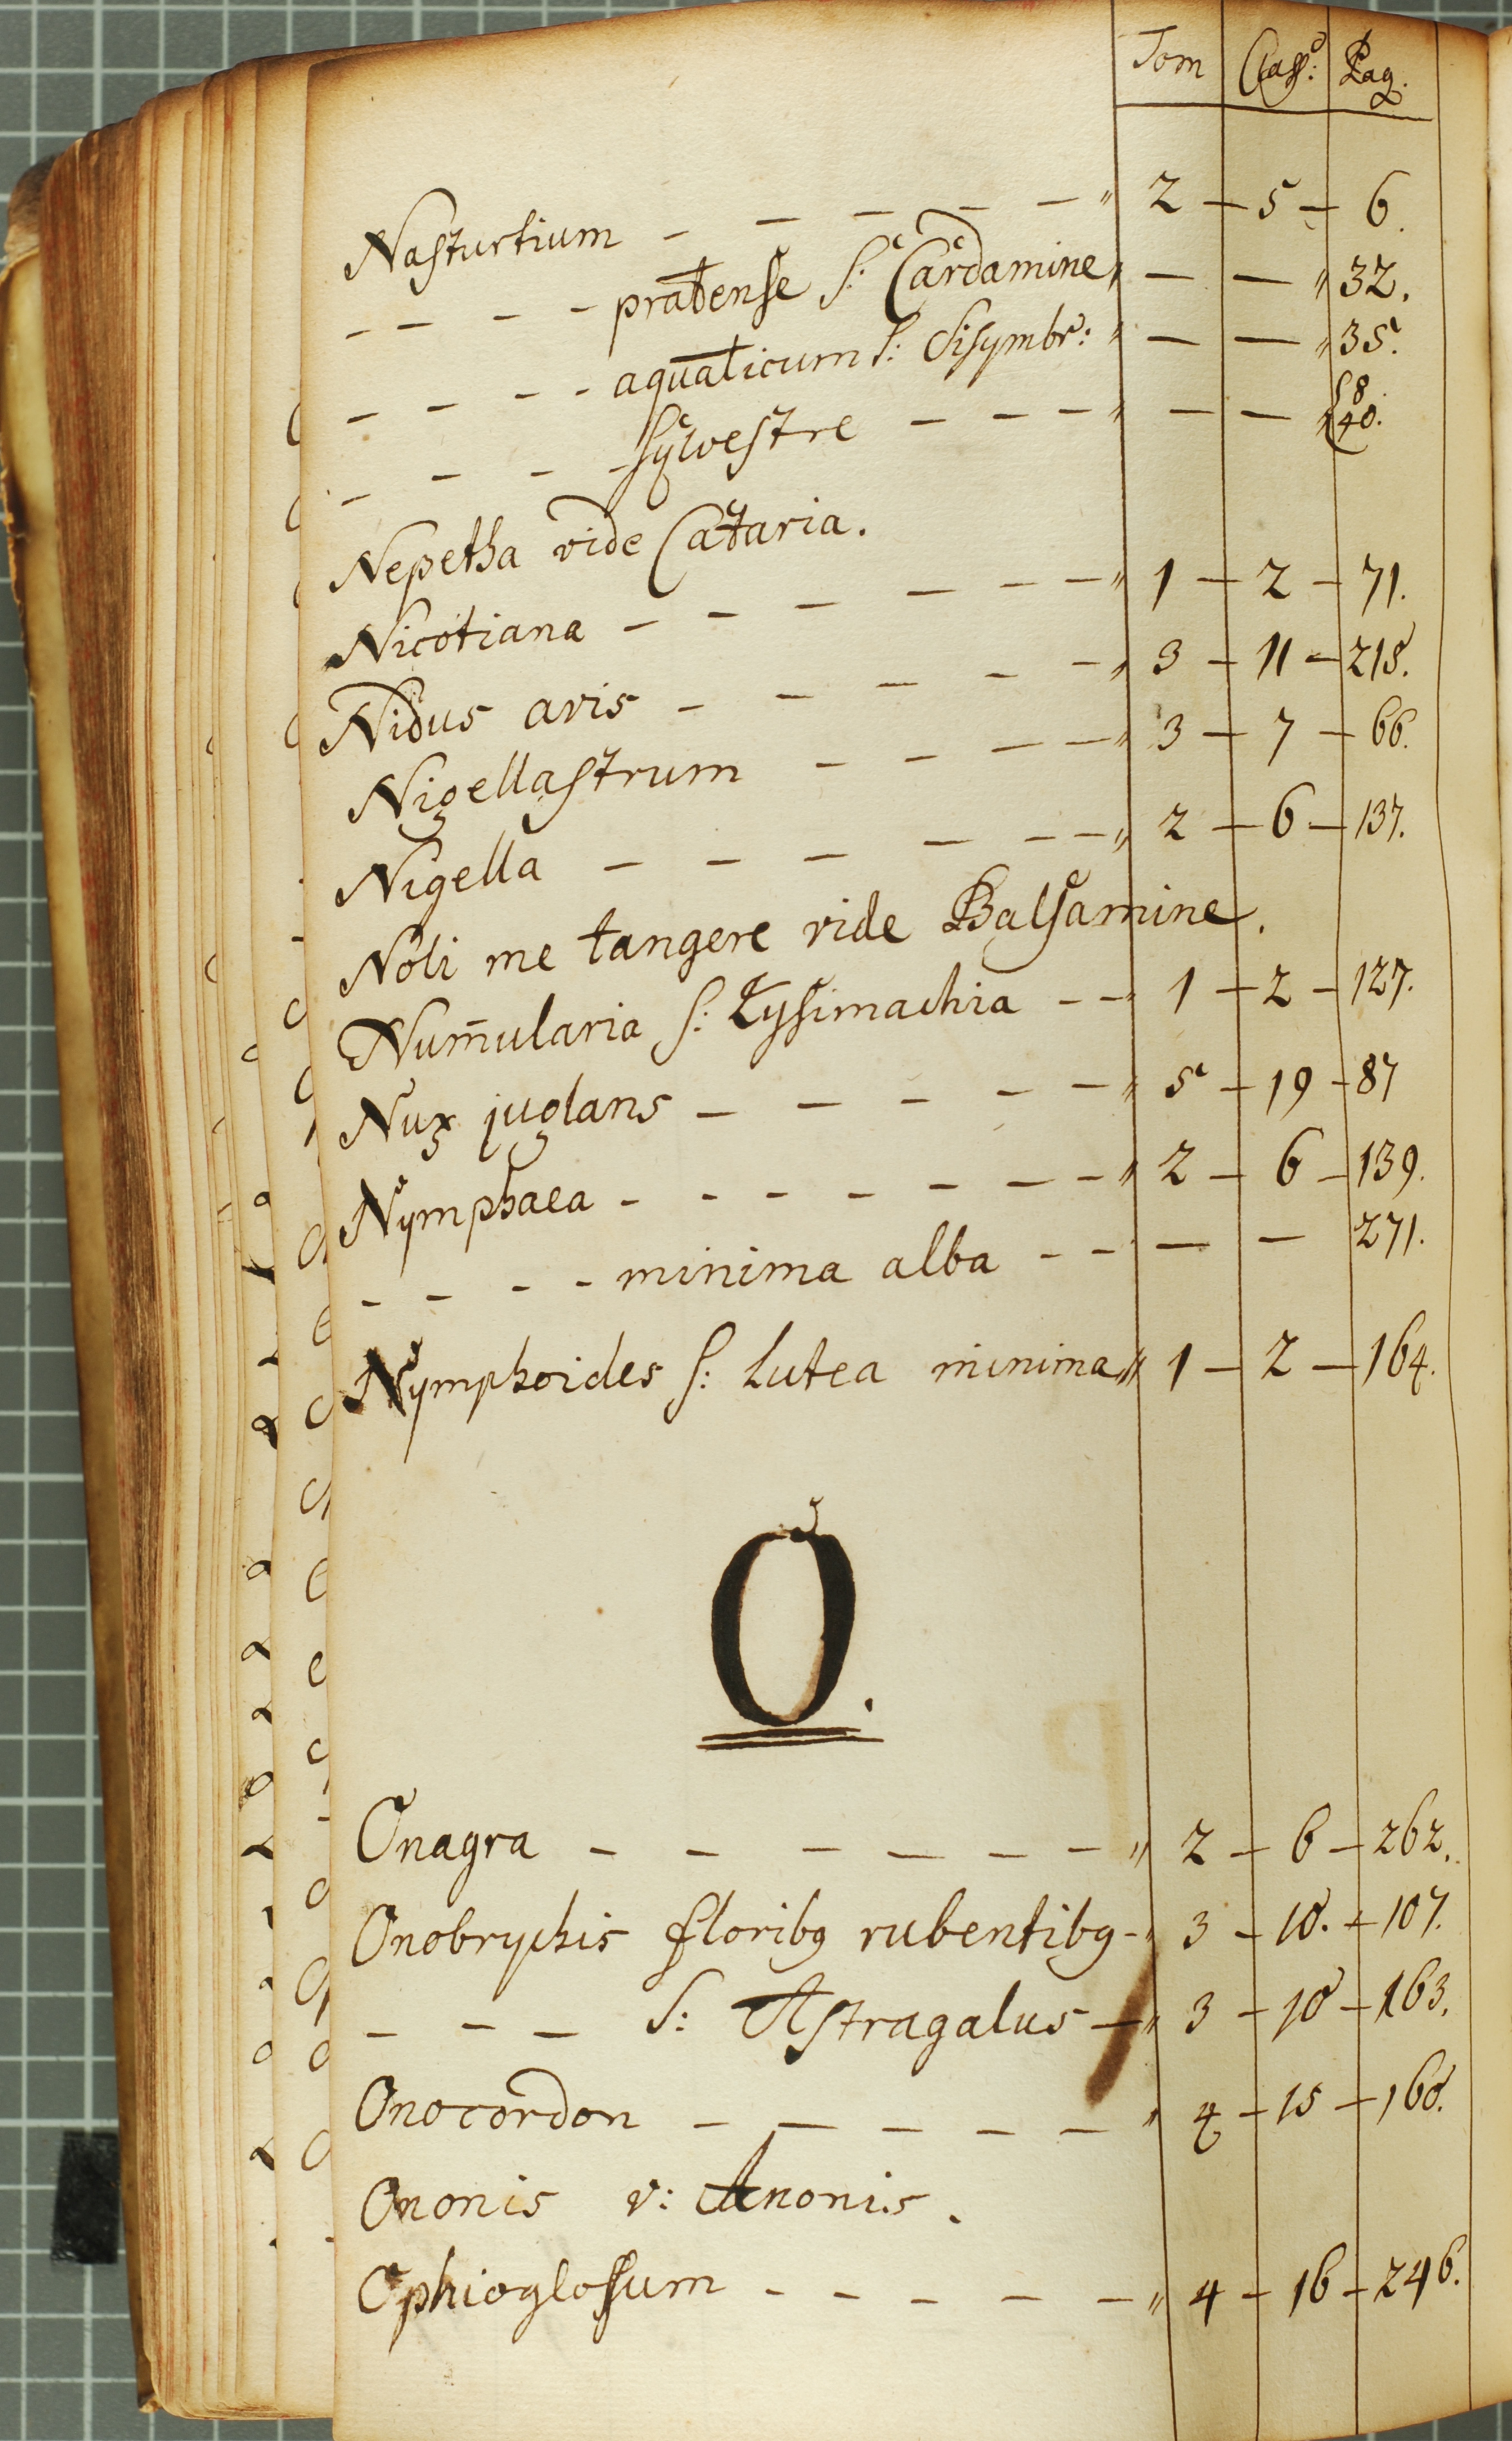 Tom Class: Pag.
Nasturtium - - - - - " 2 - 5 - 6.
- - - - pratense S: Cardamine " - - " 32.
- - - - aquaticum S: Sisymbr: " - - " 35.
- - - - sylvestre - - - " - - " {8. 40.
Nepetha vide Cataria.
Nicotiana - - - - - - " 1 - 2 - 71.
Nidus avis - - - - - " 3 - 11 - 218.
Nigellastrum - - - - " 3 - 7 - 66.
Nigella - - - - - - " 2 - 6 - 137.
Noli me tangere vide Balsamine.
Num̄ularia S: Lysimachia - - " 1 - 2 - 127.
Nux juglans - - - - - " 5 - 19 - 87
Nymphaea - - - - - - - " 2 - 6 - 139.
- - - - minima alba - - - - 271.
Nymphoides S: Lutea minima " 1 - 2 - 164.
O.
Onagra - - - - - - " 2 - 6 - 262.
Onobrychis floribꝯ rubentibꝯ - " 3 - 10. - 107.
- - - S: Astragalus - " 3 - 10 - 163.
Onocordon - - - - - " 4 - 15 - 160.
Ononis v: Anonis.
Ophioglossum - - - - - " 4 - 16 - 246.